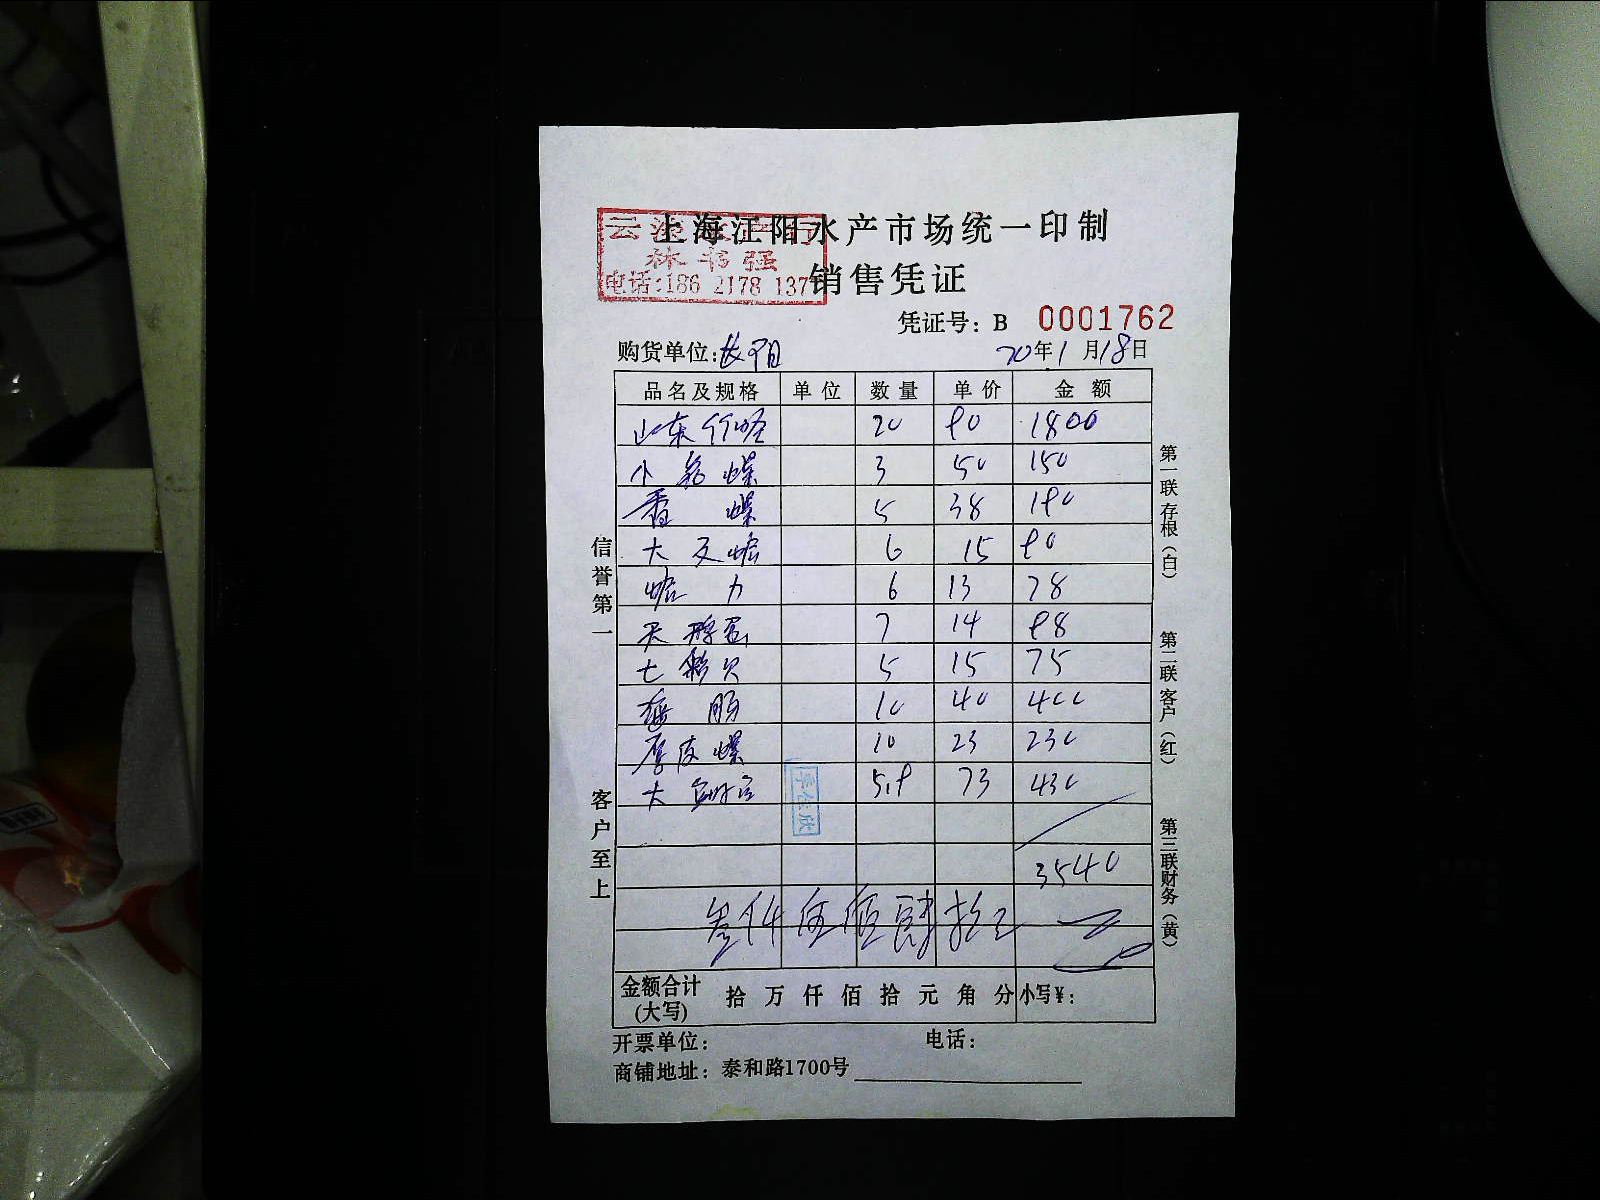 上海江阳水产市场统一印制
林书强
电话:186 2178 137
销售凭证
凭证号: B 0001762
购货单位: 长阳 20年1月18日
品名及规格 单位 数量 单价 金额
山东竹蛏 20 90 1800
小 螺 3 50 150
香螺 5 38 190
大 6 15 90
6 13 78
天鹅蛋 7 14 98
七彩贝 5 15 75
10 40 400
厚皮螺 10 23 230
大 5.9 73 430
3540
叁仟伍佰肆拾元
金额合计(大写) 拾万仟佰拾元角分 小写¥:
开票单位: 电话:
商铺地址: 泰和路1700号
信誉第一
客户至上
第一联存根(白)
第二联客户(红)
第三联财务(黄)